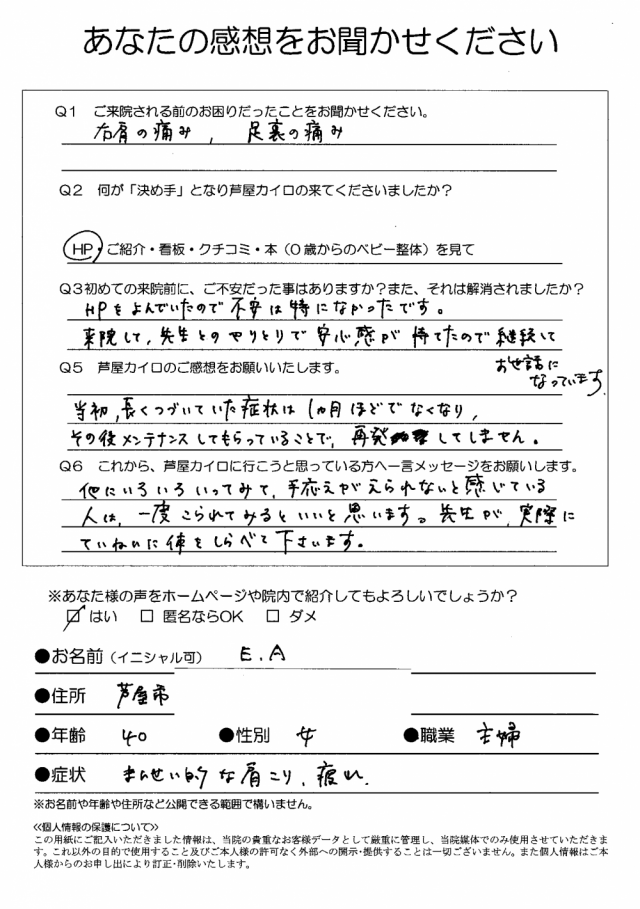 あなたの感想をお聞かせください
Q1 ご来院される前のお困りだったことをお聞かせください。
右肩の痛み , 足裏の痛み
Q2 何が「決め手」となり芦屋カイロの来てくださいましたか?
HP・ご紹介・看板・クチコミ・本(0歳からのベビー整体)を見て
Q3初めての来院前に、ご不安だった事はありますか?また、それは解消されましたか?
HPをよんでいたので不安は特になかったです。
来院して、先生とのやりとりで安心感が持てたので継続して
お世話に
なっています。
Q5 芦屋カイロのご感想をお願いいたします。
当初,長くつづいていた症状は1ヵ月ほどでなくなり,
その後メンテナンスしてもらっていることで、再発してしません。
Q6 これから、芦屋カイロに行こうと思っている方へ一言メッセージをお願いします。
他にいろいろいってみて、手応えがえられないと感じている
人は、一度こられてみるといいと思います。先生が、実際に
ていねいに体をしらべて下さいます。
※あなた様の声をホームページや院内で紹介してもよろしいでしょうか?
はい □ 匿名ならOK □ ダメ
●お名前(イニシャル可) E.A
●住所 芦屋市
●年齢 40 ●性別 女 ●職業 主婦
●症状 まんせい的な肩こり、疲れ.
※お名前や年齢や住所など公開できる範囲で構いません。
≪個人情報の保護について≫
この用紙にご記入いただきました情報は、当院の貴重なお客様データとして厳重に管理し、当院媒体でのみ使用させていただきま
す。これ以外の目的で使用すること及びご本人様の許可なく外部への開示・提供することは一切ございません。また個人情報はご本
人様からのお申し出により訂正・削除いたします。